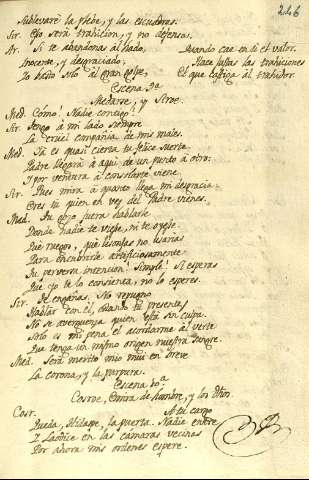 246
Sublevaré la plebe, y las escuadras.
Sir. Eso será trahicion, y no defensa.
Ar. Si te abandonas al hado,
Inocente, y desgraciado,
Yo basto solo al gran golpe,
Quando cae en ti el valor.
Hace justas las trahiciones
El que castiga al trahidor.
Escena 9a
Medarse, y Siroe.
Med. Cómo! Nadie contigo!
Sir. Tengo à mi lado siempre
La cruel compañia de mis males.
Med. Ya es quasi cierta tu felice suerte.
Padre llegará à aqui de un punto à otro:
Y por ventura à consolarte viene.
Sir. Pues mira à quanto llega mi desgracia.
Eres tú quien en vez del Padre vienes.
Med. Tu gozo fuera hablarle
Donde nadie te viese, ni te oyese.
Qué ruegos, que lisonjas no usarias
Para encubrirle artificiosamente
Tu perversa intencion! Simple! Si esperas
Que yo te lo consienta, no lo esperes.
Sir. Te engañas. No repugno
Hablar con el, estando tu presente,
No se averguenza quien está sin culpa.
Solo es mi pena el acordarme al verte
Que tenga un mismo origen nuestra sangre.
Med. Será merito mio mui en breve
La corona, y la purpura.
Escena 10.a
Cosroe, Emira de hombre, y los dhos.
Cosr. A tu cargo
Queda, Hidaspe, la puerta. Nadie entre
Y Laodice en las cámaras vecinas
Por ahora mis ordenes espere.